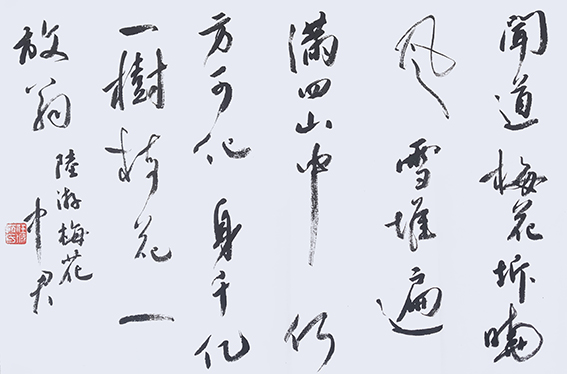 聞道梅花坼曉
风雪堆遍
滿四山中何
方可化身千亿
一樹梅花一
放翁
陸游梅花
中君